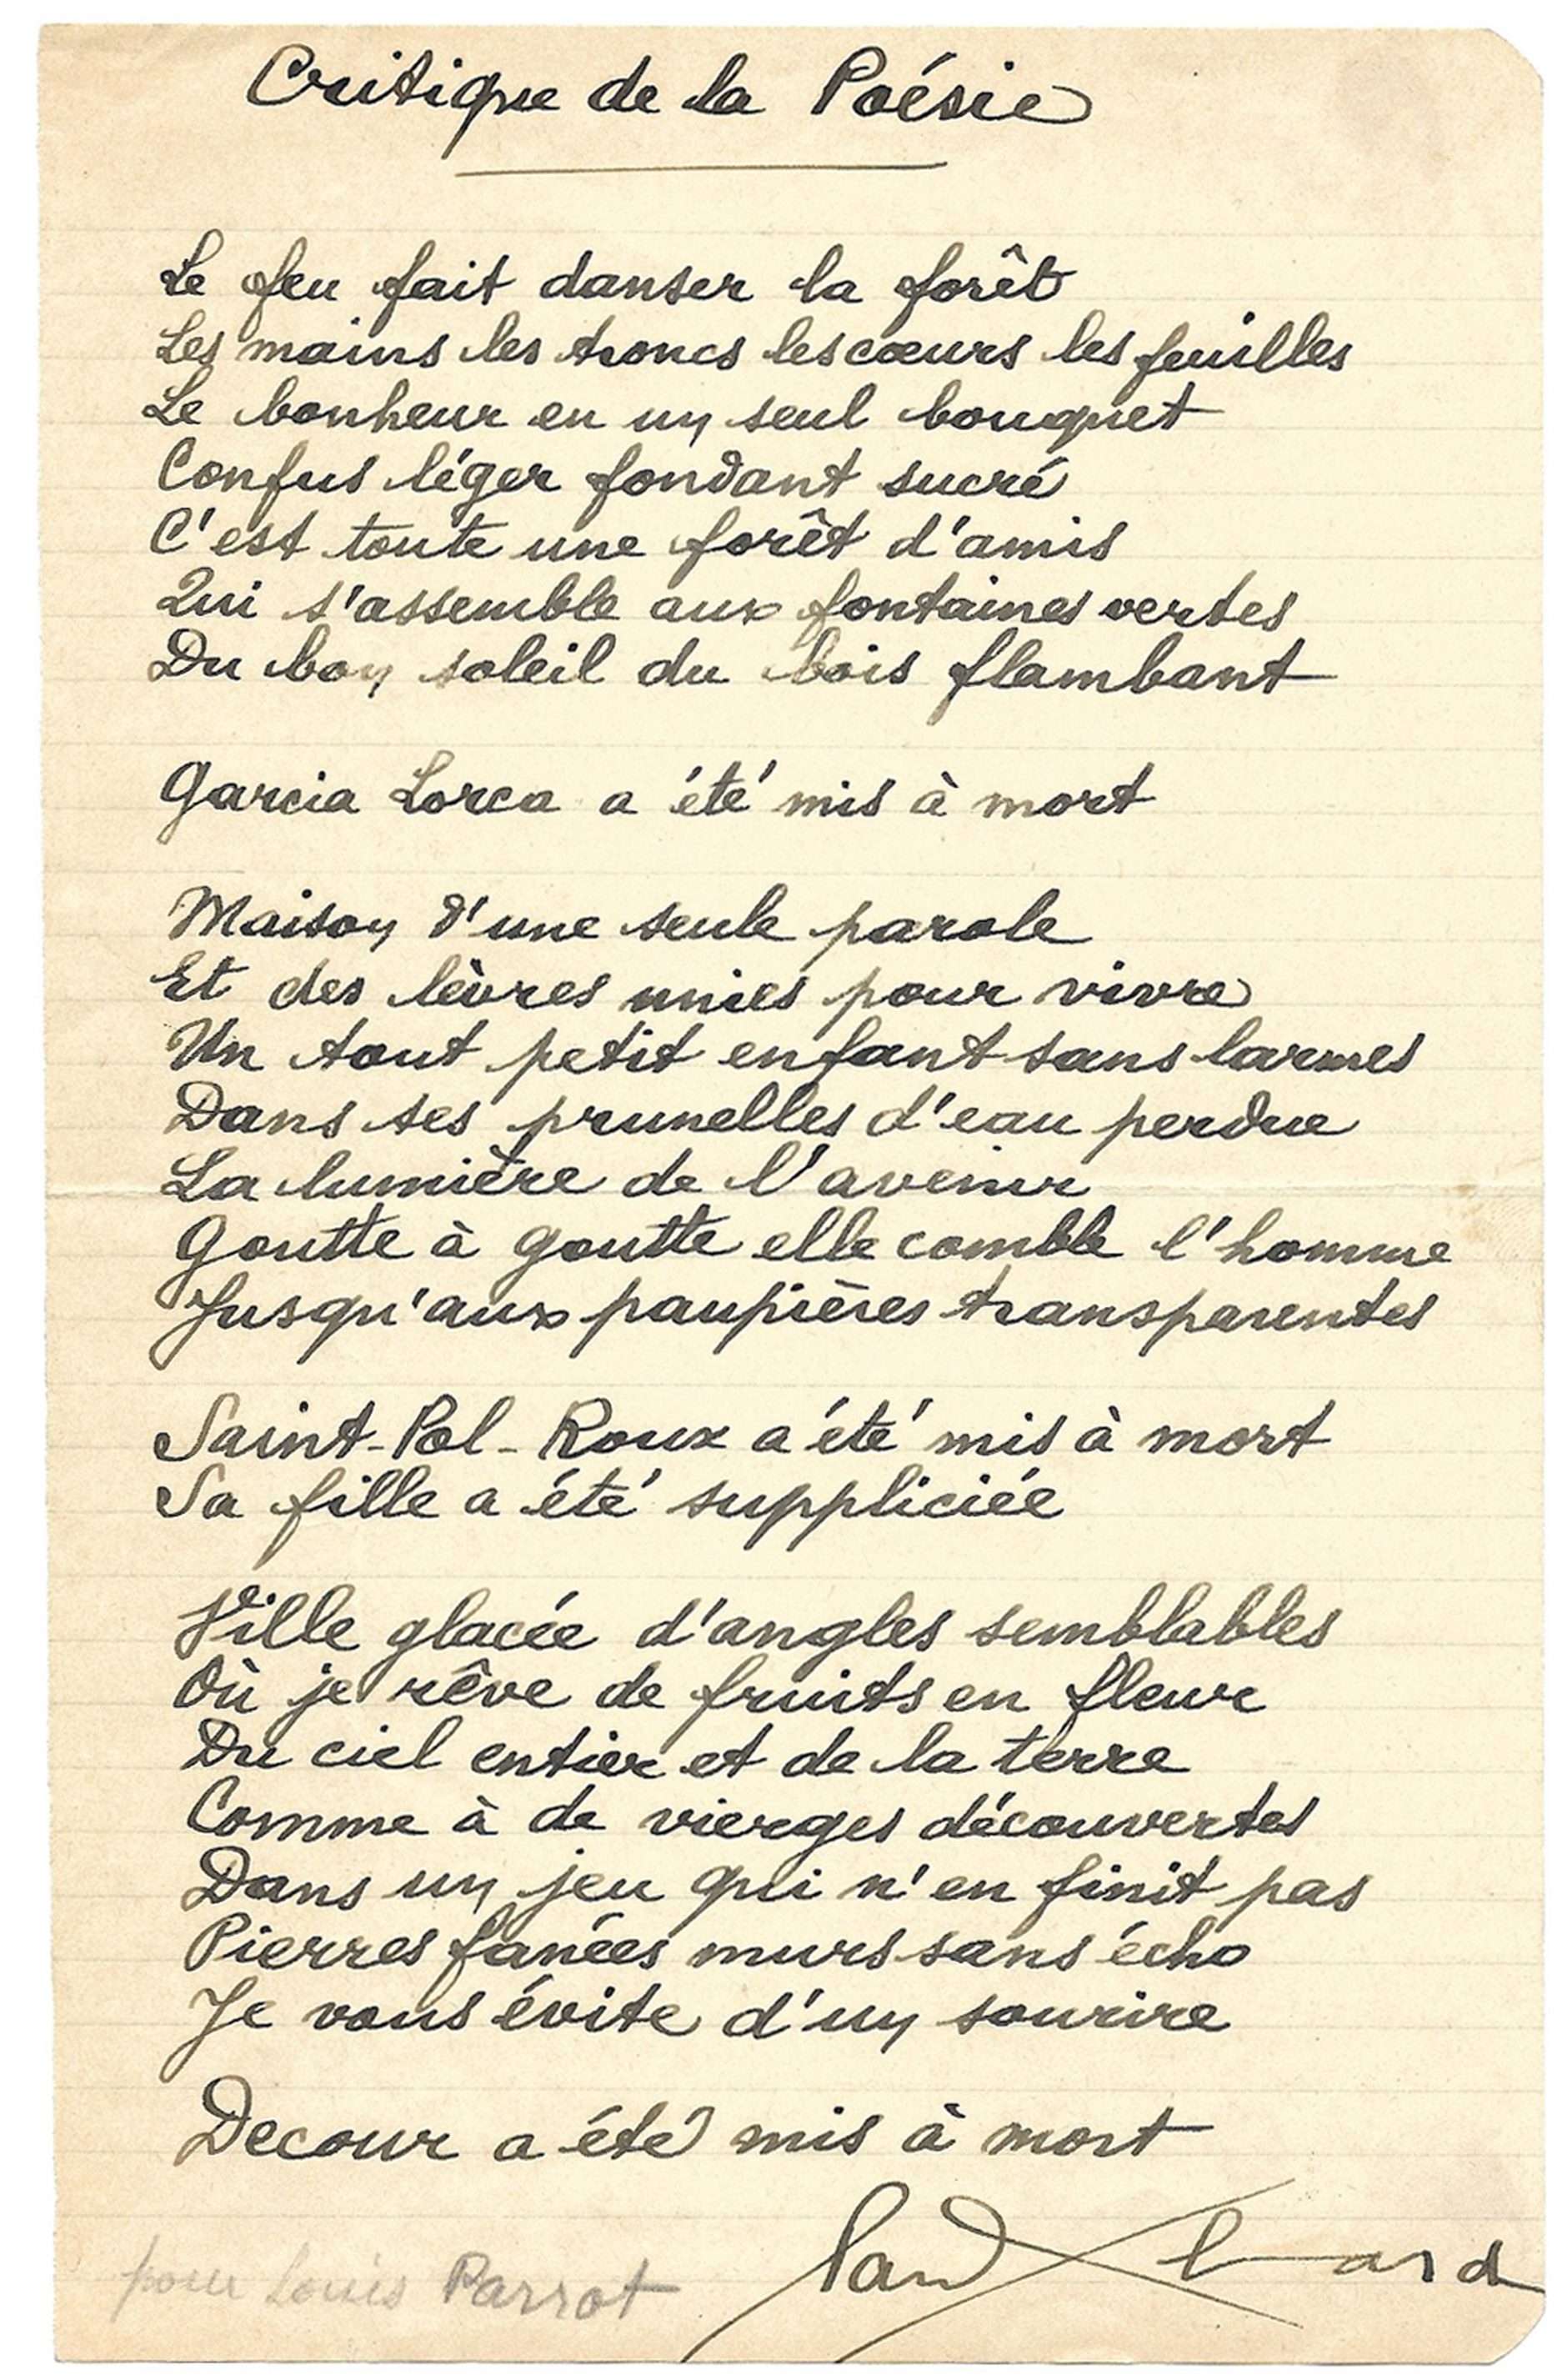 Critique de la Poésie
Le feu fait danser la forêt
Les mains les troncs les cœurs les feuilles
Le bonheur en un seul bouquet
Confus léger fondant sucré
C'est toute une forêt d'amis
Qui s'assemble aux fontaines vertes
Du bon soleil du bois flambant
Garcia Lorca a été mis à mort
Maison d'une seule parole
Et des lèvres unies pour vivre
Un tout petit enfant sans larmes
Dans ses prunelles d'eau perdue
La lumière de l'avenir
Goutte à goutte elle comble l'homme
Jusqu'aux paupières transparentes
Saint-Pol-Roux a été mis à mort
Sa fille a été suppliciée
Ville glacée d'angles semblables
Où je rêve de fruits en fleur
Du ciel entier et de la terre
Comme à de vierges découvertes
Dans un jeu qui n'en finit pas
Pierres fanées murs sans écho
Je vous évite d'un sourire
Decour a été mis à mort
Paul Eluard
pour Louis Parrot